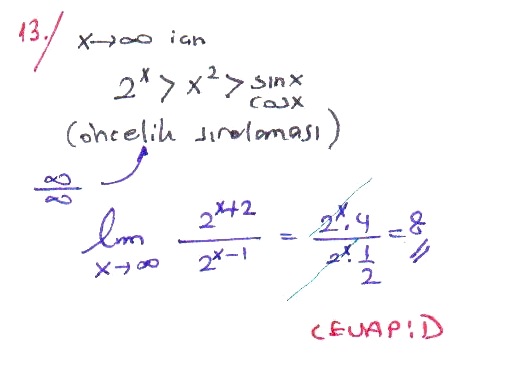 13./ x→∞ için
2^x > x^2 > sinx
cosx
(öncelik sıralaması)
∞/∞
lim x→∞ 2^(x+2) / 2^(x-1) = 2^x.4 / 2^x.1/2 = 8 //
CEVAP: D